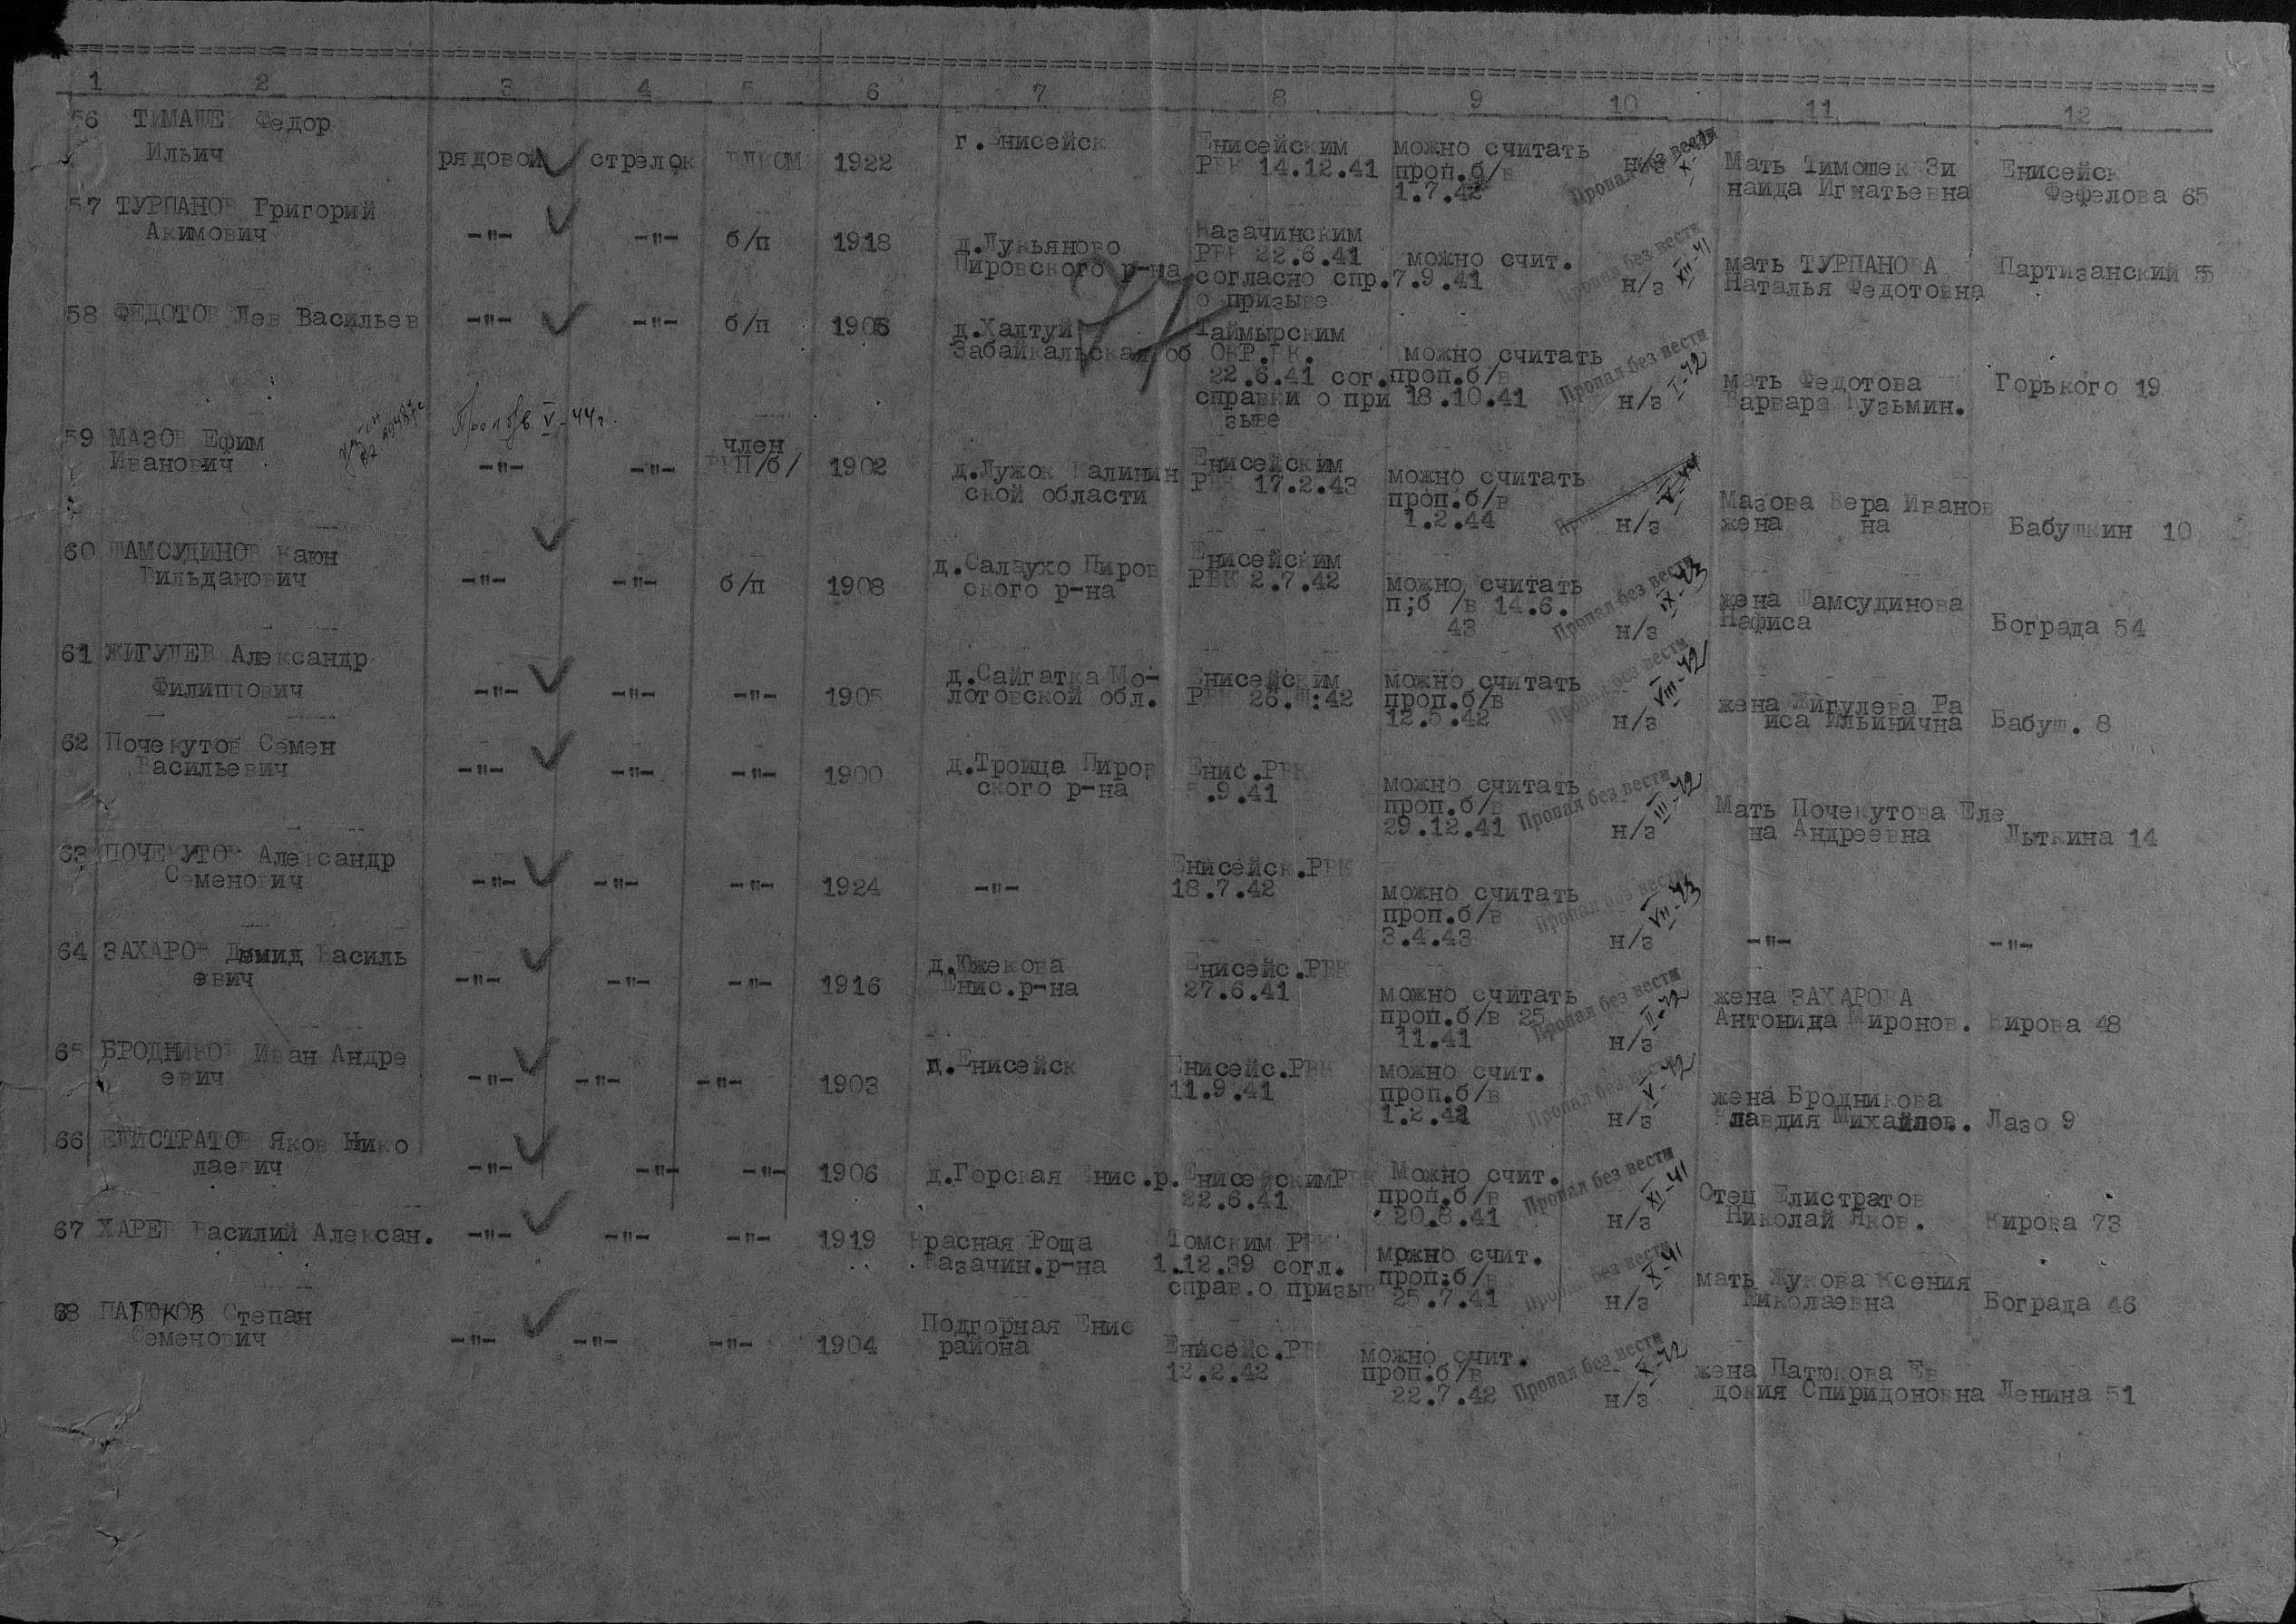 1 2 3 4 5 6 7 8 9 10 11 12
56 ТИМАШЕВ Федор
Ильич
рядовой стрелок ВЛКСМ 1922
г.Енисейск
Енисейским
РВК 14.12.41
можно считать
проп.б/в
1.7.42
н/з
Пропал без вести
Мать Тимошек Зи
наида Игнатьевна
Енисейск
Фефелова 65
57 ТУРПАНОВ Григорий
Акимович
-"- -"- б/п 1918
д.Лукьяново
Пировского р-на
Казачинским
РВК 22.6.41
согласно спр.
о призыве
можно счит.
7.9.41
н/з
Пропал без вести
XII-41
мать ТУРПАНОВА
Наталья Федотовна
Партизанский 55
58 ФЕДОТОВ Лев Васильев
-"- -"- б/п 1906
д.Халтуй
Забайкальская об
Таймырским
ОКР.ГК.
22.6.41 сог.
справки о при
зыве
можно считать
проп.б/в
18.10.41
н/з
Пропал без вести
I-42
мать Федотова
Варвара Кузьмин.
Горького 19
59 МАЗОВ Ефим
Иванович
Проп б/в V-44г.
-"- -"-
член
ВКП/б/
1902
д.Лужок Калинин
ской области
Енисейским
РВК 17.2.43
можно считать
проп.б/в
1.2.44
н/з
Мазова Вера Иванов
жена на
Бабушкин 10
60 ШАМСУДИНОВ Каюн
Вильданович
-"- -"- б/п 1908
д.Салаухо Пиров
ского р-на
Енисейским
РВК 2.7.42
можно считать
п;б /в 14.6.
43
н/з
Пропал без вести
IX-43
жена Шамсудинова
Нафиса
Бограда 54
61 ЖИГУЛЕВ Александр
Филиппович
-"- -"- -"- 1905
д.Сайгатка Мо-
лотовской обл.
Енисейским
РВК 26.Ш:42
можно считать
проп.б/в
12.5.42
н/з
Пропал без вести
VIII-42
жена Жигулева Ра
иса Ильинична
Бабуш. 8
62 Почекутов Семен
Васильевич
-"- -"- -"- 1900
д.Троица Пиров
ского р-на
Енис.РВК
5.9.41
можно считать
проп.б/в
29.12.41
н/з
Пропал без вести
III-42
Мать Почекутова Еле
на Андреевна
Лыткина 14
63 ПОЧЕКУТОВ Александр
Семенович
-"- -"- -"- 1924 -"-
Енисейск.РВК
18.7.42
можно считать
проп.б/в
3.4.43
н/з
Пропал без вести
VII-43
-"- -"-
64 ЗАХАРОВ Демид Василь
евич
-"- -"- -"- 1916
д.Южекова
Енис.р-на
Енисейс.РВК
27.6.41
можно считать
проп.б/в 25
11.41
н/з
Пропал без вести
II-42
жена ЗАХАРОВА
Антонида Миронов.
Кирова 48
65 БРОДНИКОВ Иван Андре
евич
-"- -"- -"- 1903
д.Енисейск
Енисейс.РВК
11.9.41
можно счит.
проп.б/в
1.2.42
н/з
Пропал без вести
V-42
жена Бродникова
Клавдия Михайлов.
Лазо 9
66 ЕЛИСТРАТОВ Яков Нико
лаевич
-"- -"- -"- 1906
д.Горская Енис.р.
ЕнисейскимРВК
22.6.41
Можно счит.
проп.б/в
20.8.41
н/з
Пропал без вести
XI-41
Отец Елистратов
Николай Яков.
Кирова 73
67 ХАРЕВ Василий Алексан.
-"- -"- -"- 1919
Красная Роща
Казачин.р-на
Томским РВК
1.12.39 согл.
справ.о призыв
можно счит.
проп:б/в
25.7.41
н/з
Пропал без вести
X-41
мать Жукова Ксения
Николаевна
Бограда 46
68 ПАТЮКОВ Степан
Семенович
-"- -"- -"- 1904
Подгорная Енис
района
Енисейс.РВК
12.2.42
можно счит.
проп.б/в
22.7.42
н/з
Пропал без вести
X-42
жена Патюкова Ев
докия Спиридоновна
Ленина 51